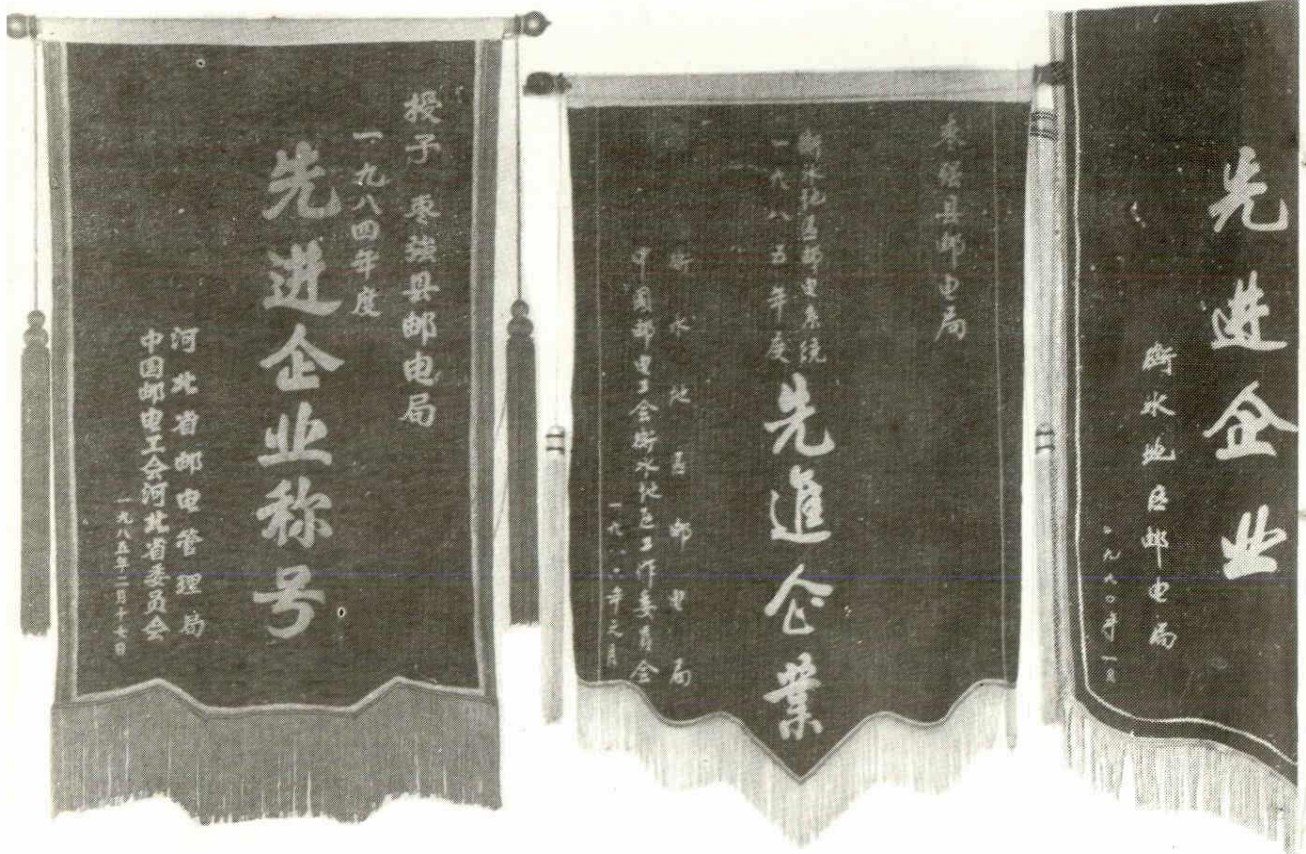 授予枣强县邮电局
一九八四年度
先进企业称号
河北省邮电管理局
中国邮电工会河北省委员会
一九八五年二月十七日
枣强县邮电局
衡水地区邮电系统
一九八五年度
先進企業
衡水地区邮电局
中国邮电工会衡水地区工作委员会
先进企业
衡水地区邮电局
一九九〇年一月